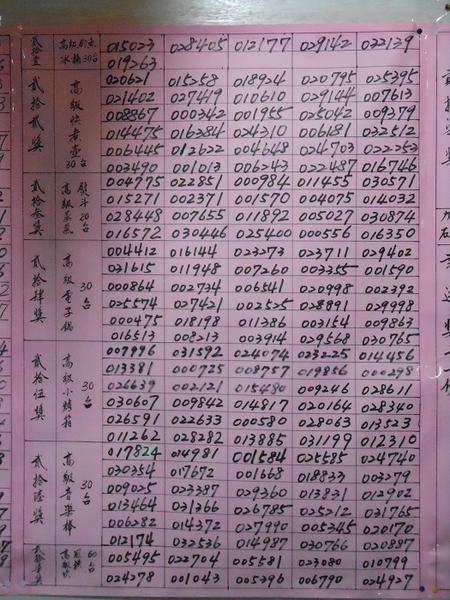 015023 028405 012177 029142 032139
019263
貳拾貳獎 高級快煮壺 30台
020621 015258 018924 020795 025395
021402 027419 010610 029144 007613
008867 000342 001955 025042 009379
014475 016284 024310 006481 032512
006445 012622 004648 024703 022253
003490 001013 006243 022487 016746
貳拾參獎 高級蒸氣熨斗 20台
004775 022851 000984 011455 030571
015271 002371 001570 004075 014032
028448 007655 011892 005027 030874
016572 030446 025400 000556 016350
貳拾肆獎 高級電子鍋 30台
004412 016144 023273 023711 029402
031615 011948 007260 003355 001590
000864 002734 006541 020998 002392
025574 027421 002525 028891 029998
000475 018198 011386 003154 009863
016513 008213 003914 029568 030765
貳拾伍獎 高級小烤箱 30台
007996 031592 024074 023225 014456
013381 000725 008757 019856 000298
026639 002121 015480 009246 028611
030607 009842 014817 020164 028340
026591 022633 000580 028063 013523
011262 028282 013885 031199 012310
貳拾陸獎 高級音樂棒 30台
017824 014981 001584 025585 024740
030354 017672 001668 018833 003279
009025 023387 029360 013831 012902
013464 031366 026785 025212 031765
006282 014372 027990 005345 020170
012174 032536 014987 030766 020887
60台
005495 022704 005581 023080 010799
024278 001043 005396 006790 024927